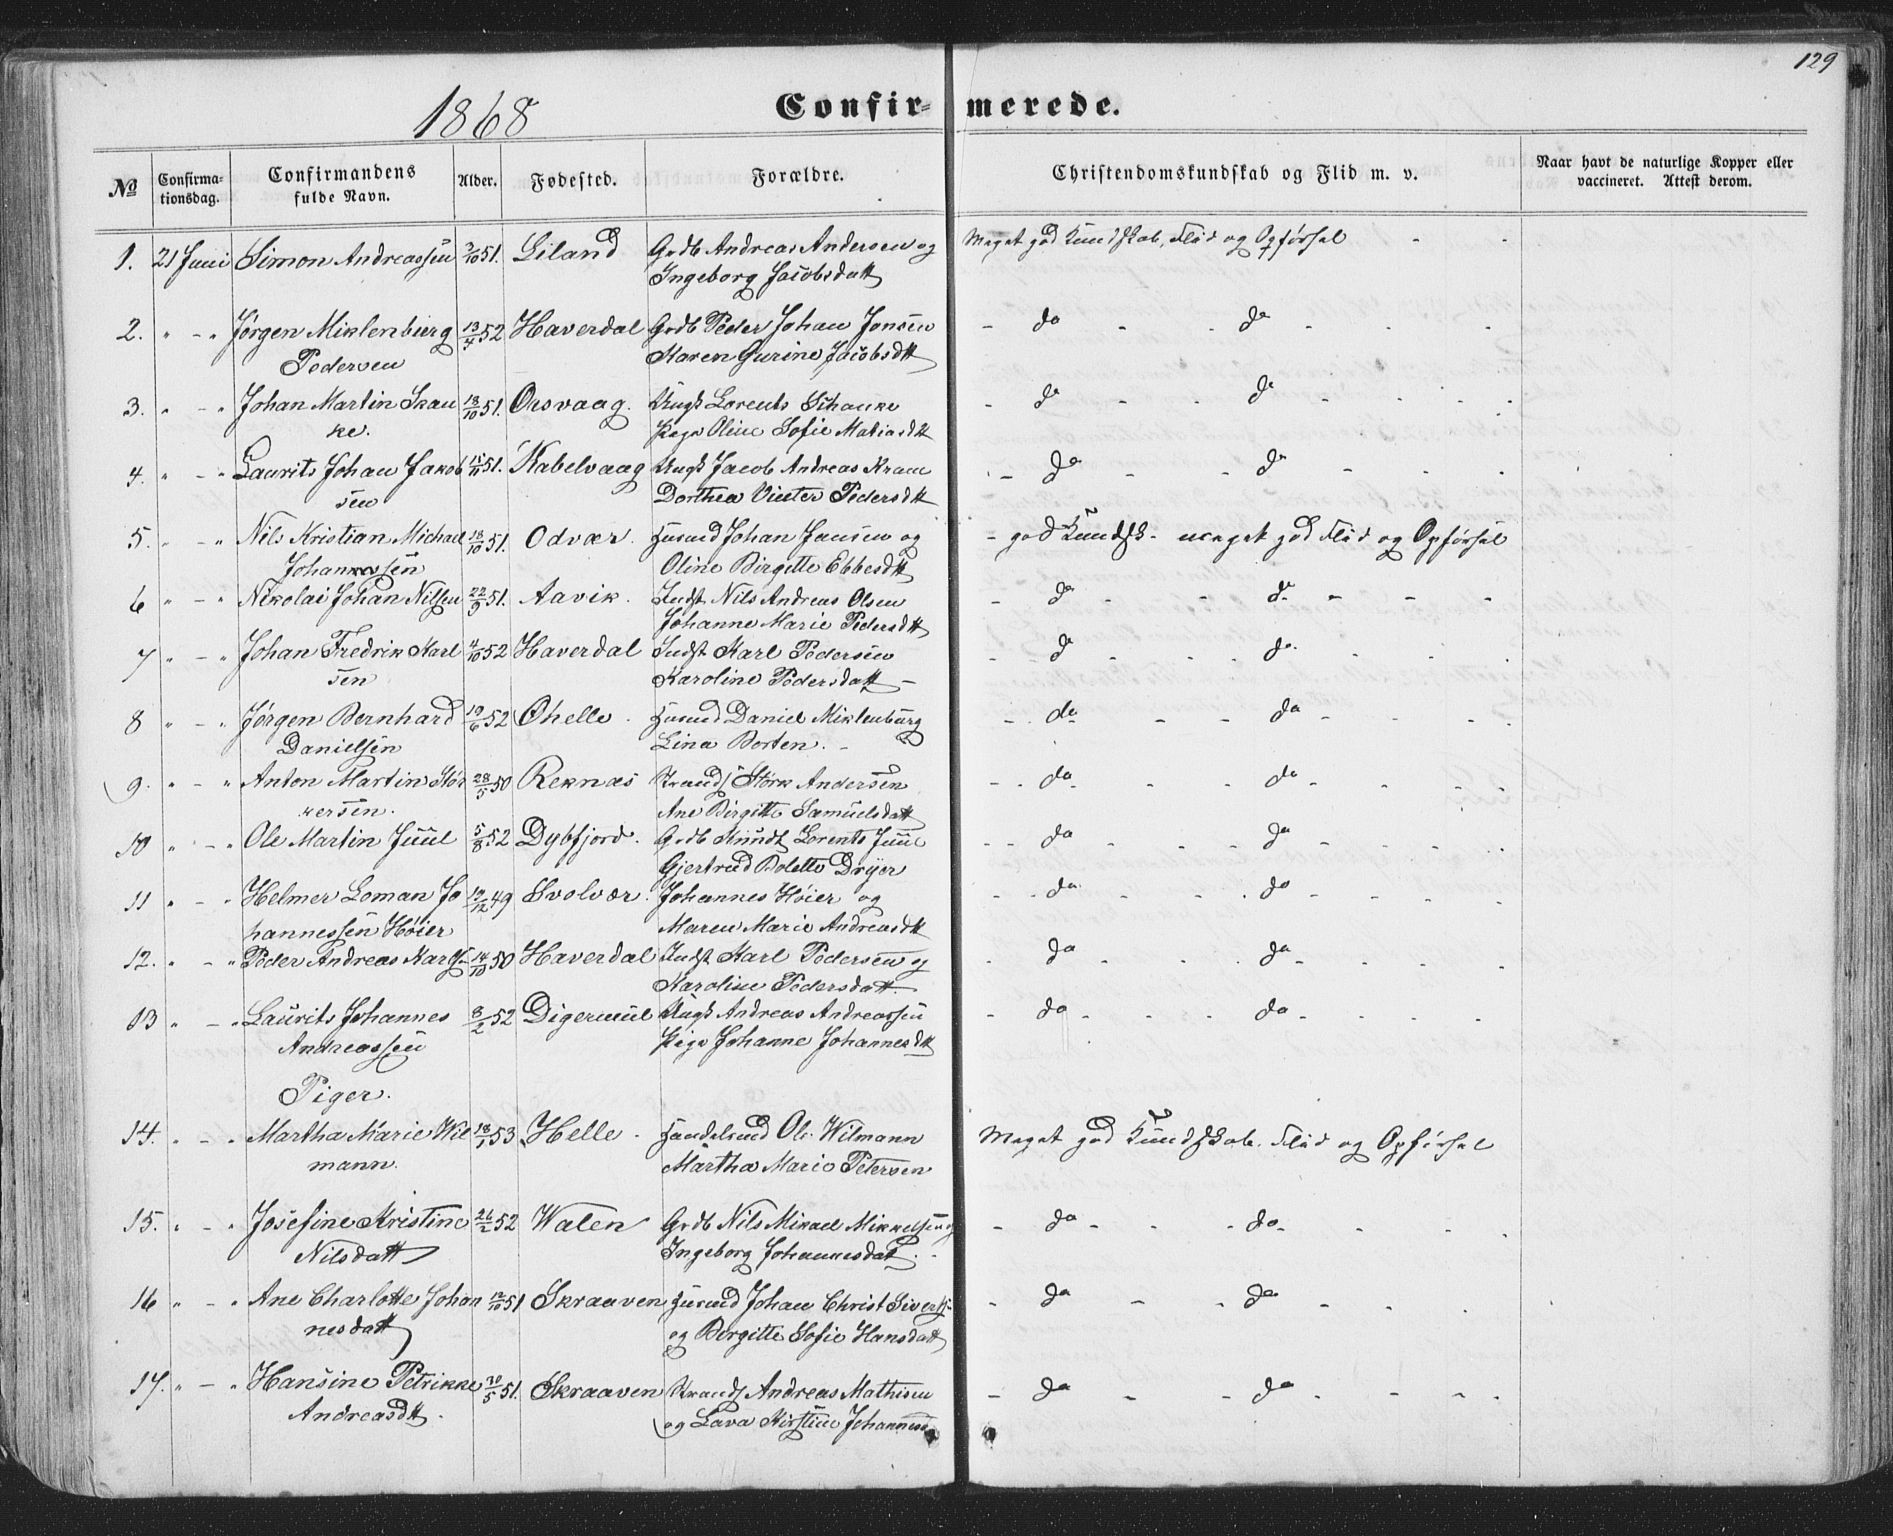 129
1868
Confirmerede.
№ Confirmationsdag. Confirmandens fulde Navn. Alder. Fødested. Forældre. Christendomskundskab og Flid m. v. Naar havt de naturlige Kopper eller vaccineret. Attest derom.
1. 21 Juni Simon Andreassen 2/10 51. Liland Grdb Andreas Andersen og Meget god Kundskab, Flid og Opførsel
Ingeborg Jacobsdatt
2. " - " Jørgen Miklenburg 13/4 52 Haverdal Grdb Peder Johan Jensen - do - - do - -
Pedersen Karen Gurine Jacobsdtt
3. " - " Johan Martin Skan 18/10 51. Orsvaag. Ungk Lorents Schanke - do - - do - - -
ke. Pige Oline Sofie Matiasdtt
4. " - " Laurits Johan Jakob 15/11 51. Kabelvaag Ungk Jacob Andreas Kram - do - - do - -
sen Dorthea Vinter Pedersdtt
5. " - " Nils Kristian Michael 18/10 51. Odvær. Husmd Johan Jansen og - god Kundsk - meget god Flid og Opførsel
Johannessen Oline Birgitte Ebbesdtt
6 " - " Nikolai Johan Nilsen 22/9 51. Aavik. Indst Nils Andreas Olsen - do - - do - - -
Johanne Marie Pedersdtt
7 " - " Johan Fredrik Karl 4/10 52 Haverdal Indst Karl Pedersen - do - - do - - -
sen Karoline Pedersdatt -
8 " - " Jørgen Bernhard 19/6 52 Ohelle. Husmd Daniel Miklenburg - do - - do - - -
Danielsen Lina Borten. -
9. " - " Anton Martin Stør 28/5 50 Reknes Strands Størk Andersen - do - - do - - -
kersen. Ane Birgitte Samuelsdatt
10 " - " Ole Martin Juul 5/8 52 Dybfjord. Grdb Knudt Lorents Juul - - do - - do - - -
Gjertrud Bolette Dryer
11 " - " Helmer Loman Jo 19/12 49 Svolvær. Johannes Høier og - - do - - do - - -
hannessen Høier Maren Marie Andreasdtt
12. " - " Peder Andreas Karls- 14/10 50 Haverdal Indst Karl Pedersen og - do - - do - - -
Karoline Pedersdatt.
13 " - " Laurits Johannes 8/2 52 Digermul Ungk Andreas Andreassen - do - - do - - -
Andreassen Pige Johanne Johannesdtt
Piger.
14. " - " Martha Marie Wil 18/1 53 Helle. Handelsmd Ole Wilmann Meget god Kundskab. Flid og Opførsel
mann. Martha Marie Petersen
15. " - " Josefine Kristine 26/2 52 Walen Grdb Nils Mikael Mikkelsen og - do - - do - - -
Nilsdatt Ingeborg Johannesdatt.
16 " - " Ane Charlotte Johan 12/10 51 Skraaven Husmd Johan Christ Siverts- - do - - do - - -
nesdatt og Birgitte Sofie Hansdatt
17. " - " Hansine Petrikke 30/5 51. Skraaven Strands Andreas Mathisen - do - - do - - -
Andreasdtt. og Lava Kirstine Johannesd